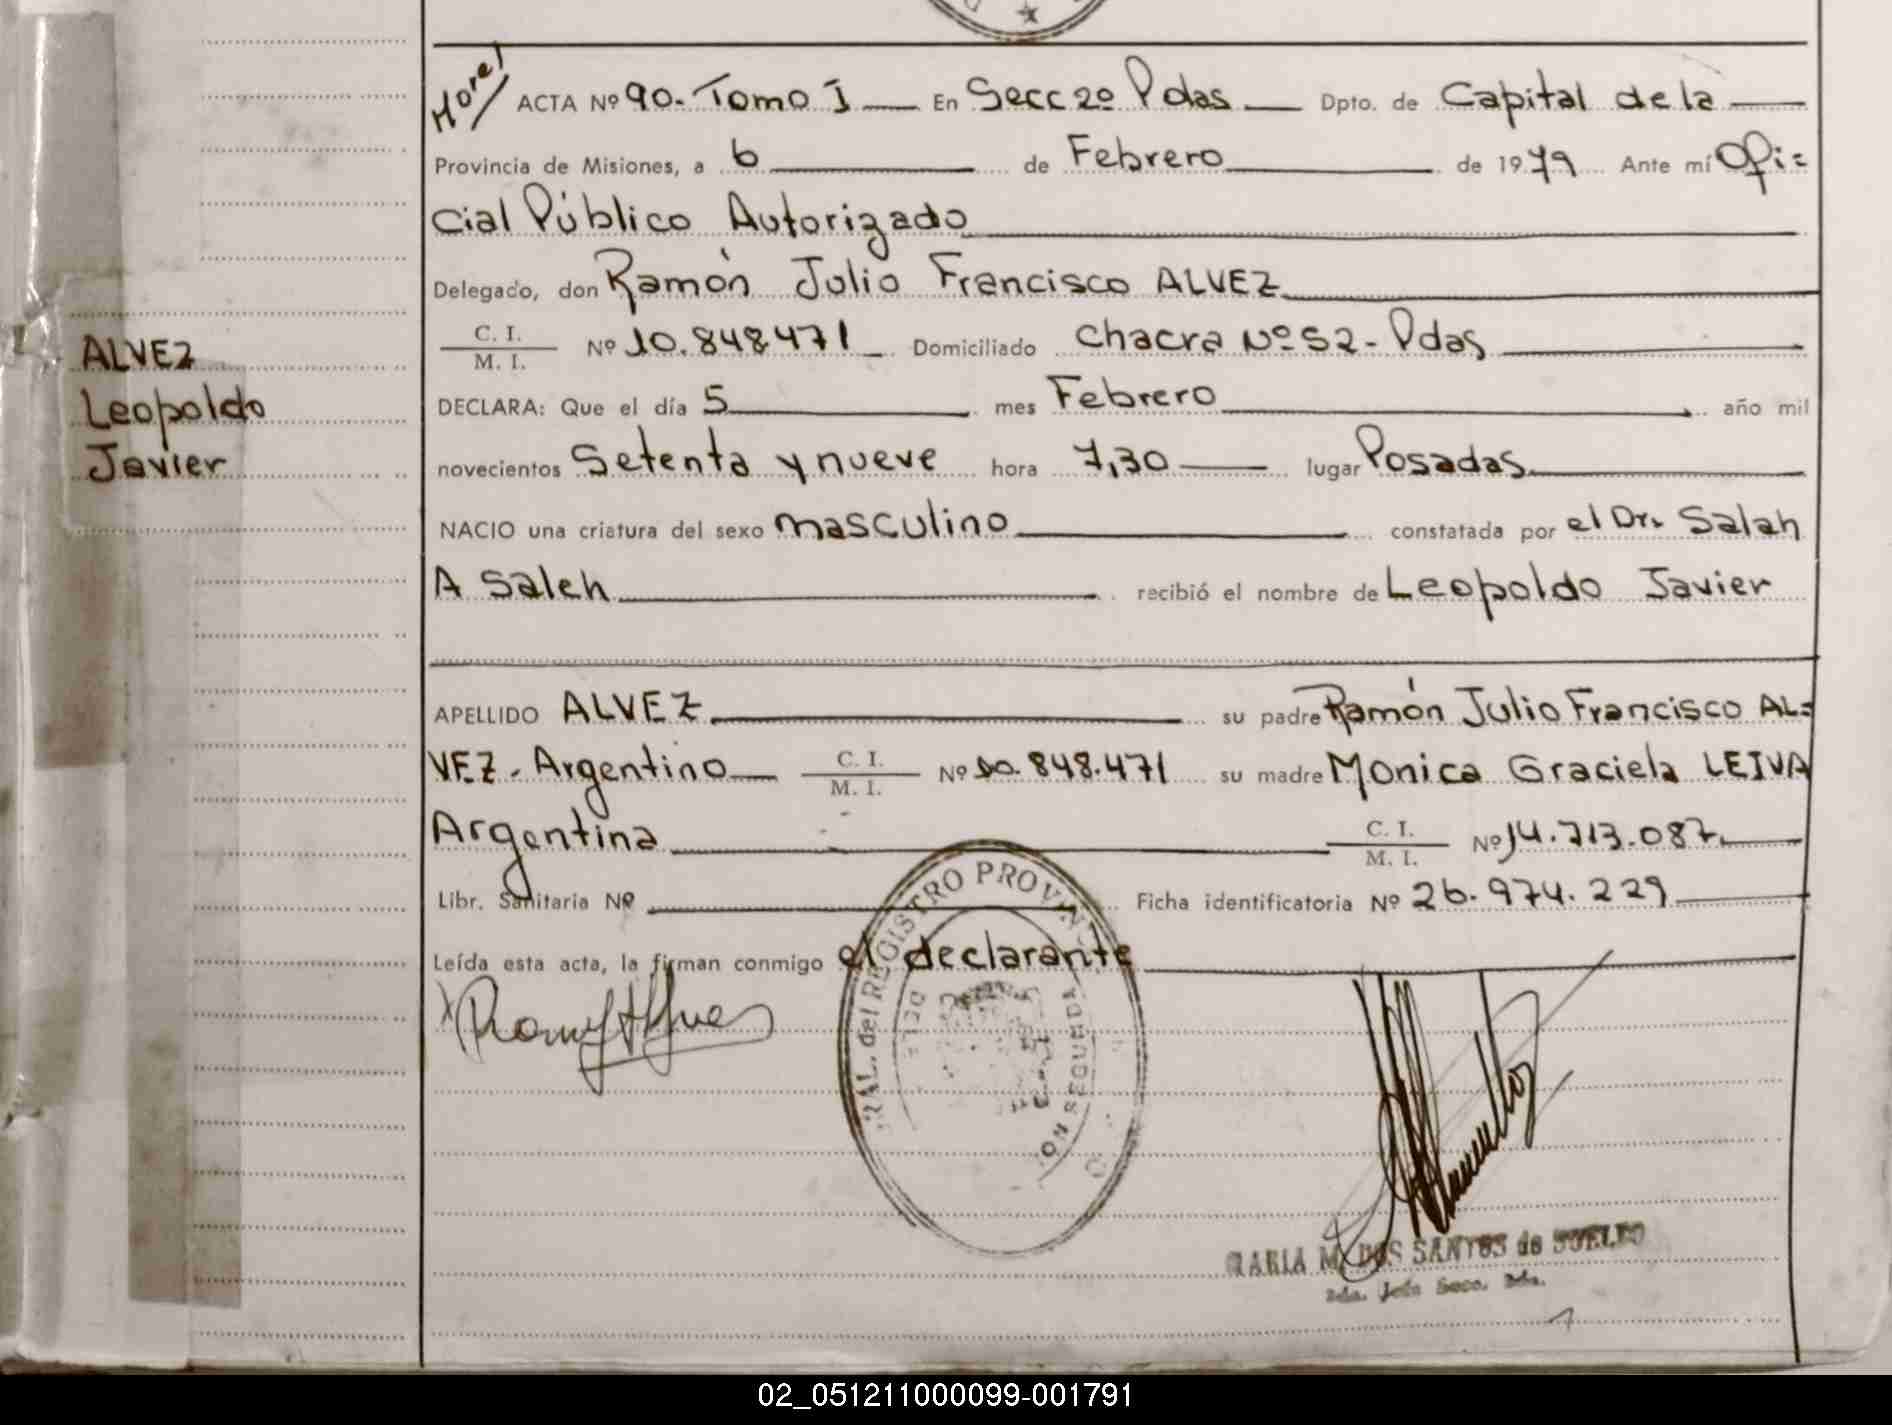 Morel
ACTA Nº 90.- Tomo I En Secc 2º Pdas Dpto. de Capital de la
Provincia de Misiones, a 6 de Febrero de 1979 Ante mí Ofi=
cial Público Autorizado
Delegado, don Ramón Julio Francisco ALVEZ
C. I.
M. I. Nº 10.848.471 Domiciliado Chacra Nº 52 - Pdas
DECLARA: Que el día 5 mes Febrero año mil
novecientos Setenta y nueve hora 7,30 lugar Posadas
NACIO una criatura del sexo masculino constatada por el Dr. Salah
A Saleh recibió el nombre de Leopoldo Javier
ALVEZ
Leopoldo
Javier
APELLIDO ALVEZ su padre Ramón Julio Francisco AL=
VEZ - Argentino C. I. M. I. Nº 10.848.471 su madre Monica Graciela LEIVA
Argentina C. I. M. I. Nº 14.713.087.
Libr. Sanitaria Nº Ficha identificatoria Nº 26.974.229
Leída esta acta, la firman conmigo el declarante
RAL. del REGISTRO PROVIN
MARIA M. DOS SANTOS de SUELDO
02_051211000099-001791